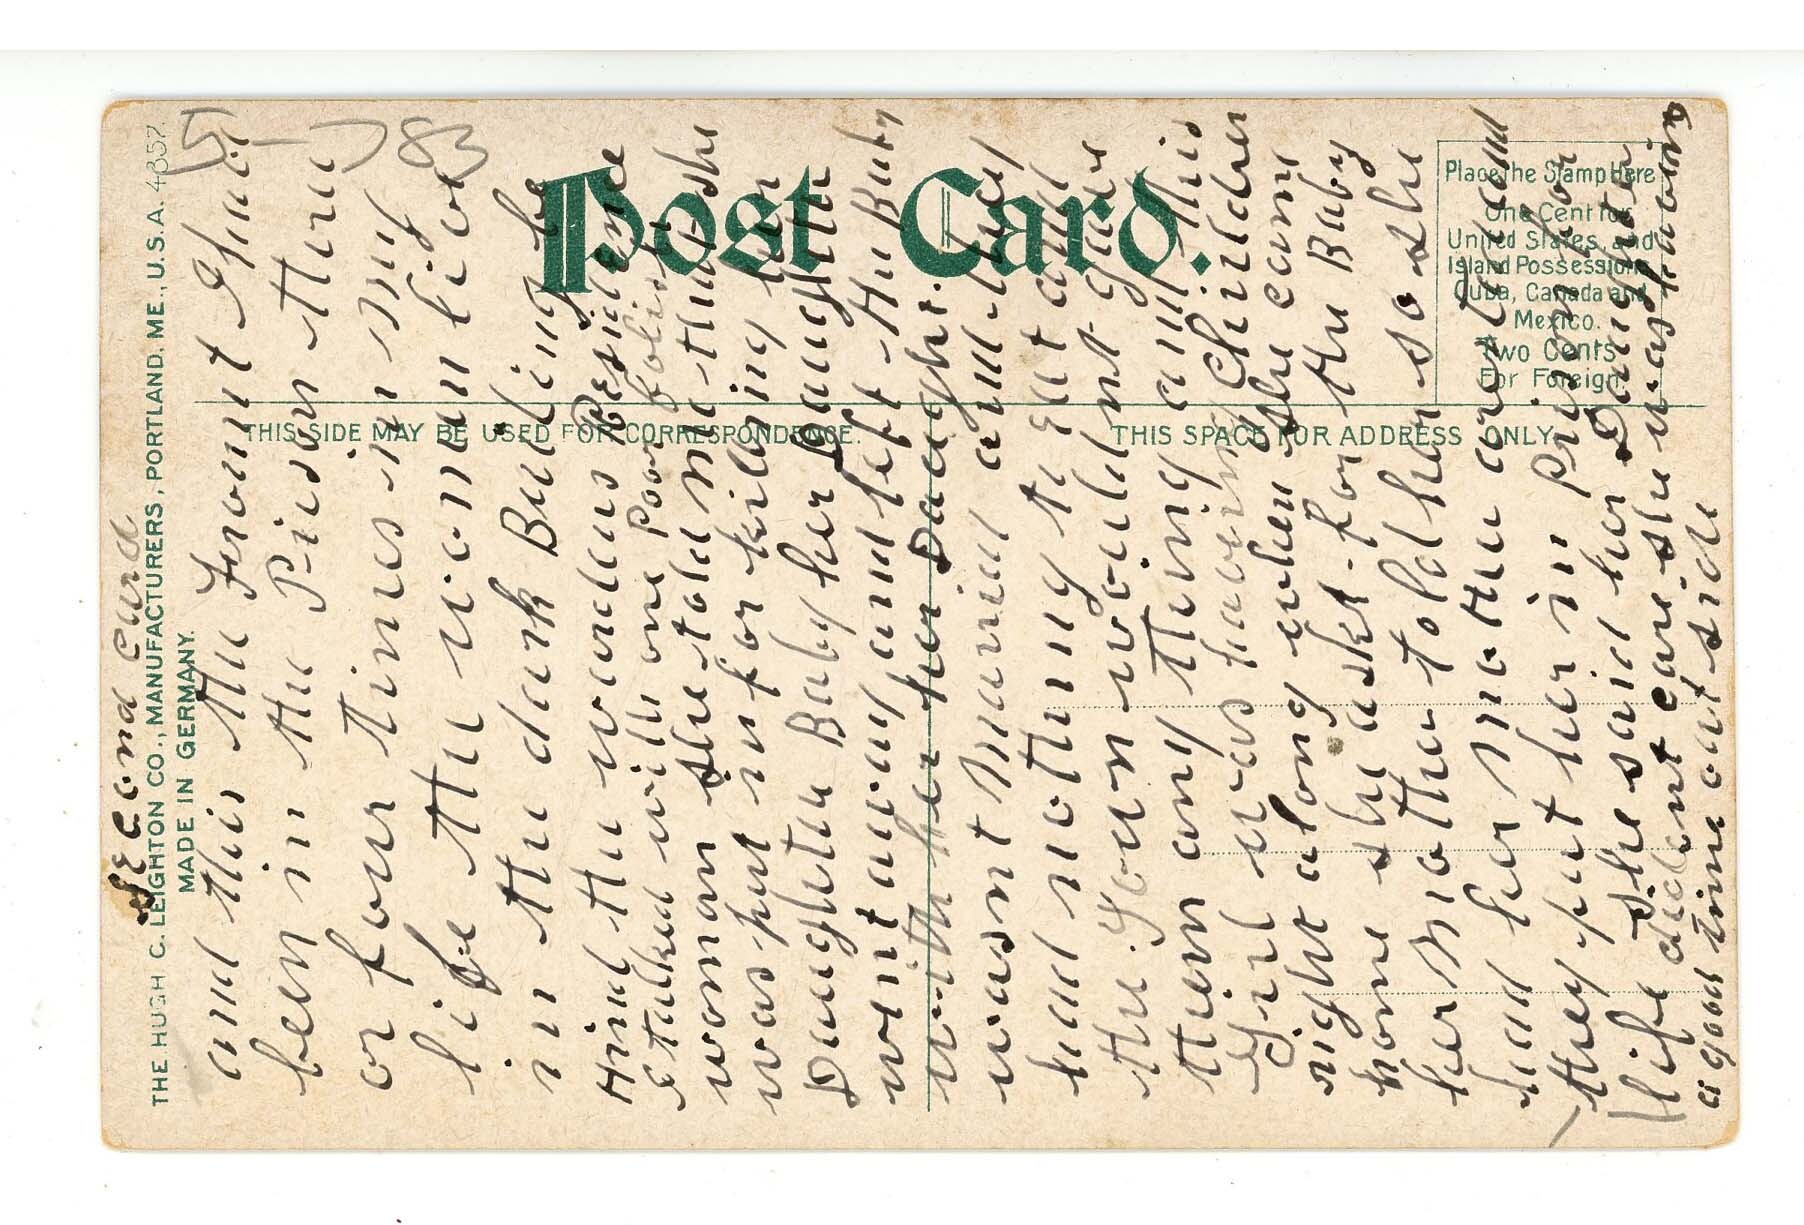 Second Card
THE HUGH C. LEIGHTON CO., MANUFACTURERS, PORTLAND, ME., U.S.A. 4857.
MADE IN GERMANY.
Post Card.
THIS SIDE MAY BE USED FOR CORRESPONDENCE.
THIS SPACE FOR ADDRESS ONLY.
Place the Stamp Here
One Cent for
United States, and
Island Possessions
Cuba, Canada and
Mexico.
Two Cents
For Foreign.
83
and this the Front I have
been in the Prison three
or four times in my
life the woman live
in the dark Building be
Hind the wardens Residence
I talked with one Poor foolish
woman she told me that she
was put in for killing her
Daughters Baby her Daughter
went away and left the Baby
with her her Daught.
wasnt Married and they
had nothing to eat and
the Town wouldnt give
them any thing and this
Girl was having Children
right along when she came
home she askt for the Baby
her Mother told her so she
had her Mother arested and
they put her in Prison for
life She said her Daughter
dident care she was having
a good time out side